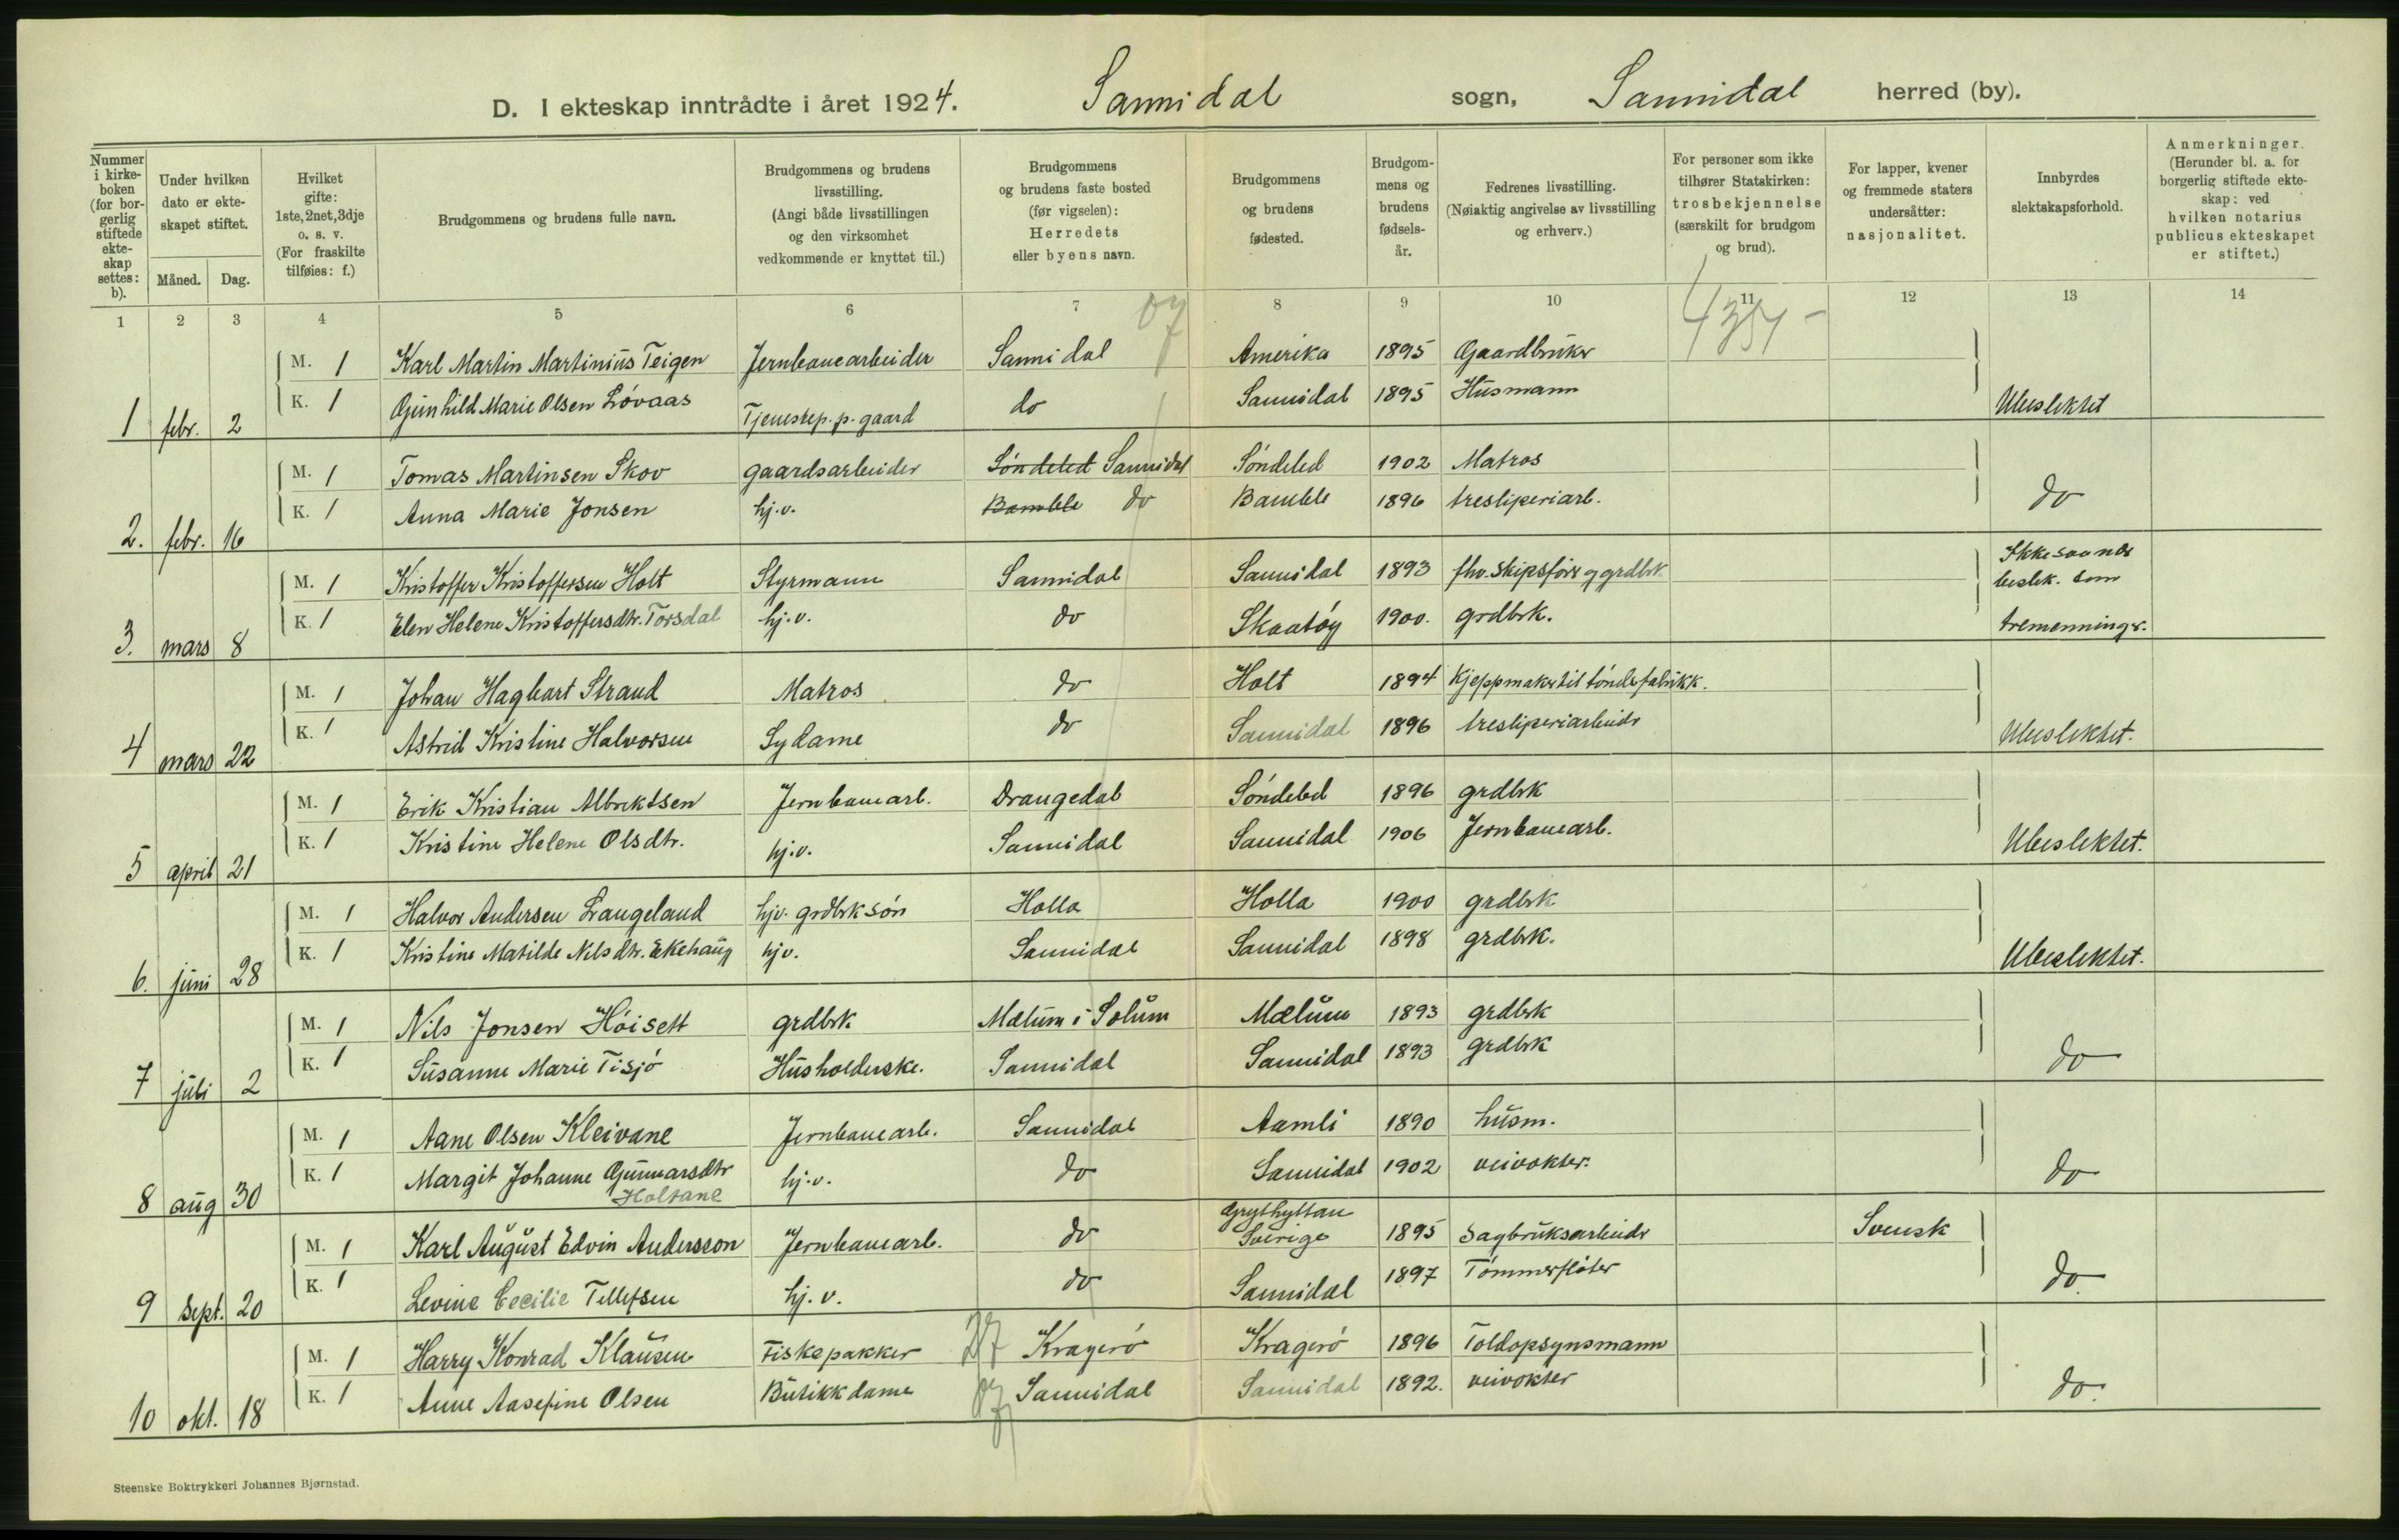 D. I ekteskap inntrådte i året 1924. Sannidal sogn, Sannidal herred (by).
Nummer i kirke-boken (for bor-gerlig stiftede ekte-skap settes: b).
Under hvilken dato er ekte-skapet stiftet.
Måned. Dag.
Hvilket gifte: 1ste, 2net, 3dje o. s. v. (For fraskilte tilføies: f.)
Brudgommens og brudens fulle navn.
Brudgommens og brudens livsstilling. (Angi både livsstillingen og den virksomhet vedkommende er knyttet til.)
Brudgommens og brudens faste bosted (før vigselen): Herredets eller byens navn.
Brudgommens og brudens fødested.
Brudgom-mens og brudens fødsels-år.
Fedrenes livsstilling. (Nøiaktig angivelse av livsstilling og erhverv.)
For personer som ikke tilhører Statskirken: trosbekjennelse (særskilt for brudgom og brud).
For lapper, kvener og fremmede staters undersåtter: nasjonalitet.
Innbyrdes slektskapsforhold.
Anmerkninger. (Herunder bl. a. for borgerlig stiftede ekte-skap: ved hvilken notarius publicus ekteskapet er stiftet.)
1 2 3 4 5 6 7 8 9 10 11 12 13 14
07
M. 1 Karl Martin Martinius Teigen Jernbanearbeider Sannidal Amerika 1895 Gaardbruker
K. 1 Gunhild Marie Olsen Lövaas Tjenestep. p. gaard do Sannidal 1895 Husmann
1 febr. 2 Ubeslektet
M. 1 Tomas Martinsen Skov gaardsarbeider Söndeled Sannidal Söndeled 1902 Matros
K. 1 Anna Marie Jonsen hj.v. Bamble do Bamble 1896 tresliperiarb.
2. febr. 16 do
M. 1 Kristoffer Kristoffersen Holt Styrmann Sannidal Sannidal 1893 fhv. skipsförer og grdbrk
K. 1 Elen Helene Kristoffersdtr. Torsdal hj.v. do Skaatöy 1900. grdbrk.
3. mars 8 Ikke saa nær beslek. som tremenninger.
M. 1 Johan Hagbart Strand Matros do Holt 1894 Kjeppmaker til töndefabrikk.
K. 1 Astrid Kristine Halvorsen Sydame do Sannidal 1896 tresliperiarbeider
4 mars 22 Ubeslektet.
M. 1 Erik Kristian Albrektsen Jernbanearb. Drangedal Söndeled 1896 grdbrk
K. 1 Kristine Helene Olsdtr. hj.v. Sannidal Sannidal 1906 Jernbanearb.
5 april 21 Ubeslektet.
M. 1 Halvor Andersen Langeland hjv. grdbrk sön Holla Holla 1900 grdbrk
K. 1 Kristine Matilde Nilsdtr. Ekehaug hjv. Sannidal Sannidal 1898 grdbrk.
6. juni 28 Ubeslektet.
M. 1 Nils Jonsen Höisett grdbrk Mælum i Solum Mælum 1893 grdbrk
K. 1 Susanne Marie Tisjö Husholderske. Sannidal Sannidal 1893 grdbrk
7 juli 2 do
M. 1 Aane Olsen Kleivane Jernbanearb. Sannidal Aamli 1890 husm.
K. 1 Margit Johanne Gunnarsdtr Holtane hj.v. do Sannidal 1902 veivokter.
8 aug 30 do
M. 1 Karl August Edvin Andersson Jernbanearb. do Grythyttan Sverige 1895 Sagbruksarbeider Svensk
K. 1 Levine Cecilie Tellefsen hj.v. do Sannidal 1897 Tömmerflöter
9 sept. 20 do.
M. 1 Harry Konrad Klausen Fiskepakker 27 Kragerö Kragerö 1896 Toldopsynsmann
K. 1 Anne Aasefine Olsen Butikkdame 07 Sannidal Sannidal 1892. veivokter
10 okt. 18 do.
Steenske Boktrykkeri Johannes Bjørnstad.